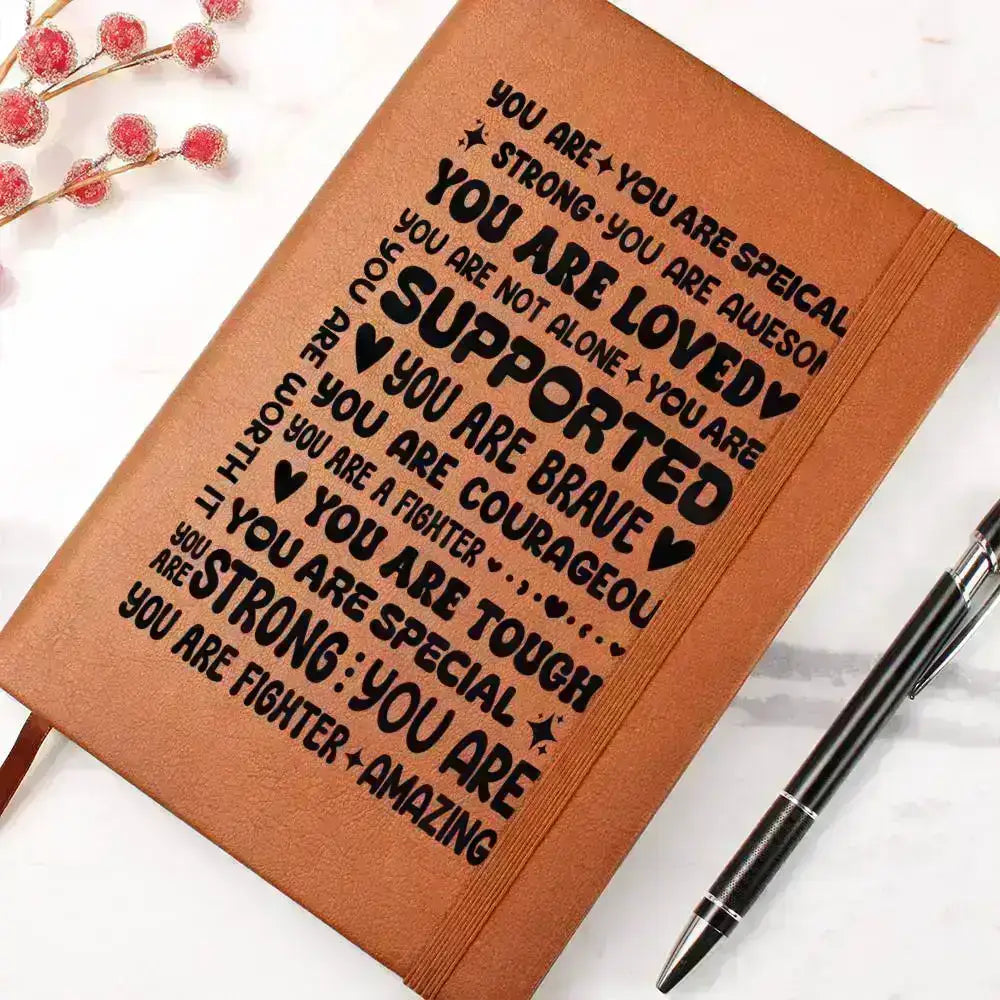 YOU ARE ✦ YOU ARE SPEICAL
✦ STRONG • YOU ARE AWESOM
YOU ARE LOVED ♥
YOU ARE NOT ALONE ✦ YOU ARE
SUPPORTED
YOU ARE WORTH IT
♥ YOU ARE BRAVE ♥
YOU ARE COURAGEOU
YOU ARE A FIGHTER
♥ YOU ARE TOUGH
YOU ARE SPECIAL ✦
YOU ARE STRONG : YOU ARE
YOU ARE FIGHTER ✦ AMAZING